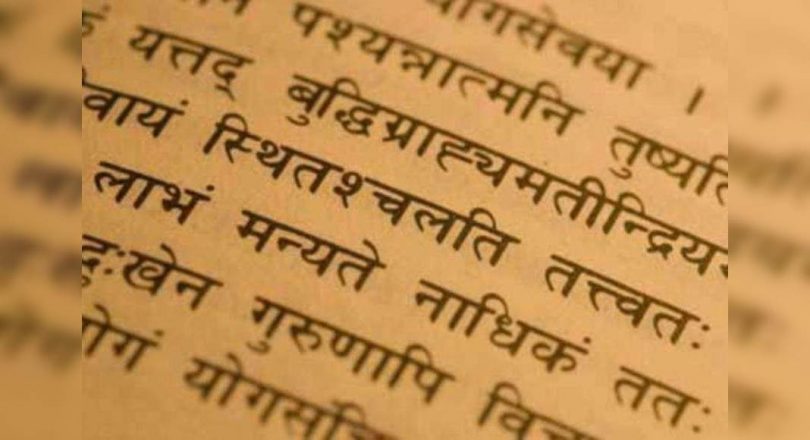 योगसेवया ।
पश्यन्नात्मनि तुष्यति
यत्तद् बुद्धिग्राह्यमतीन्द्रिय
वायं स्थितश्चलति तत्त्वतः
लाभं मन्यते नाधिकं ततः
दुःखेन गुरुणापि विचा
योगं